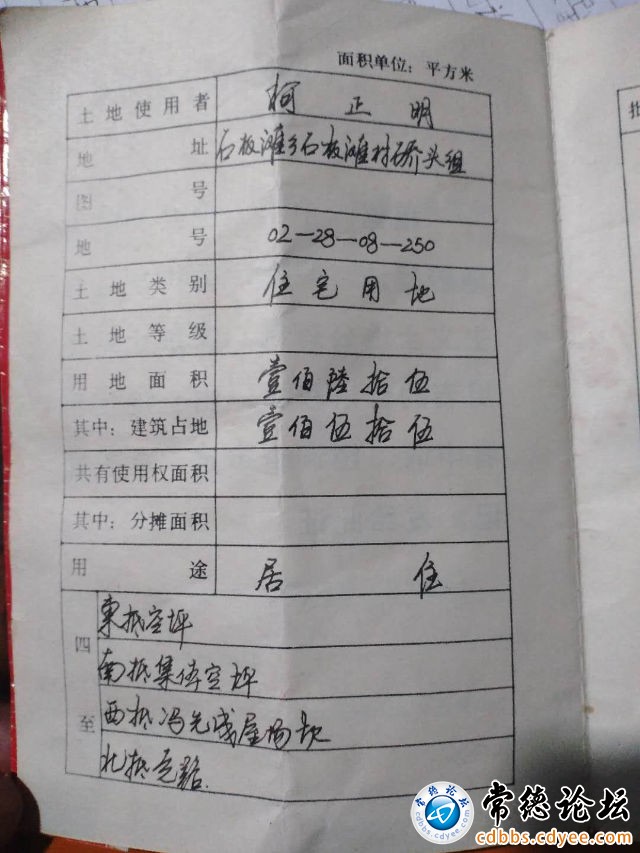 面积单位：平方米
土地使用者 柯正明
地址 石板滩乡石板滩村桥头组
图号
地号 02—28—08—250
土地类别 住宅用地
土地等级
用地面积 壹佰陆拾伍
其中：建筑占地 壹佰伍拾伍
共有使用权面积
其中：分摊面积
用途 居住
四至
東抵空坪
南抵集体空坪
西抵冯先成屋场
北抵
批
常德论坛
cdbbs.cdyee.com